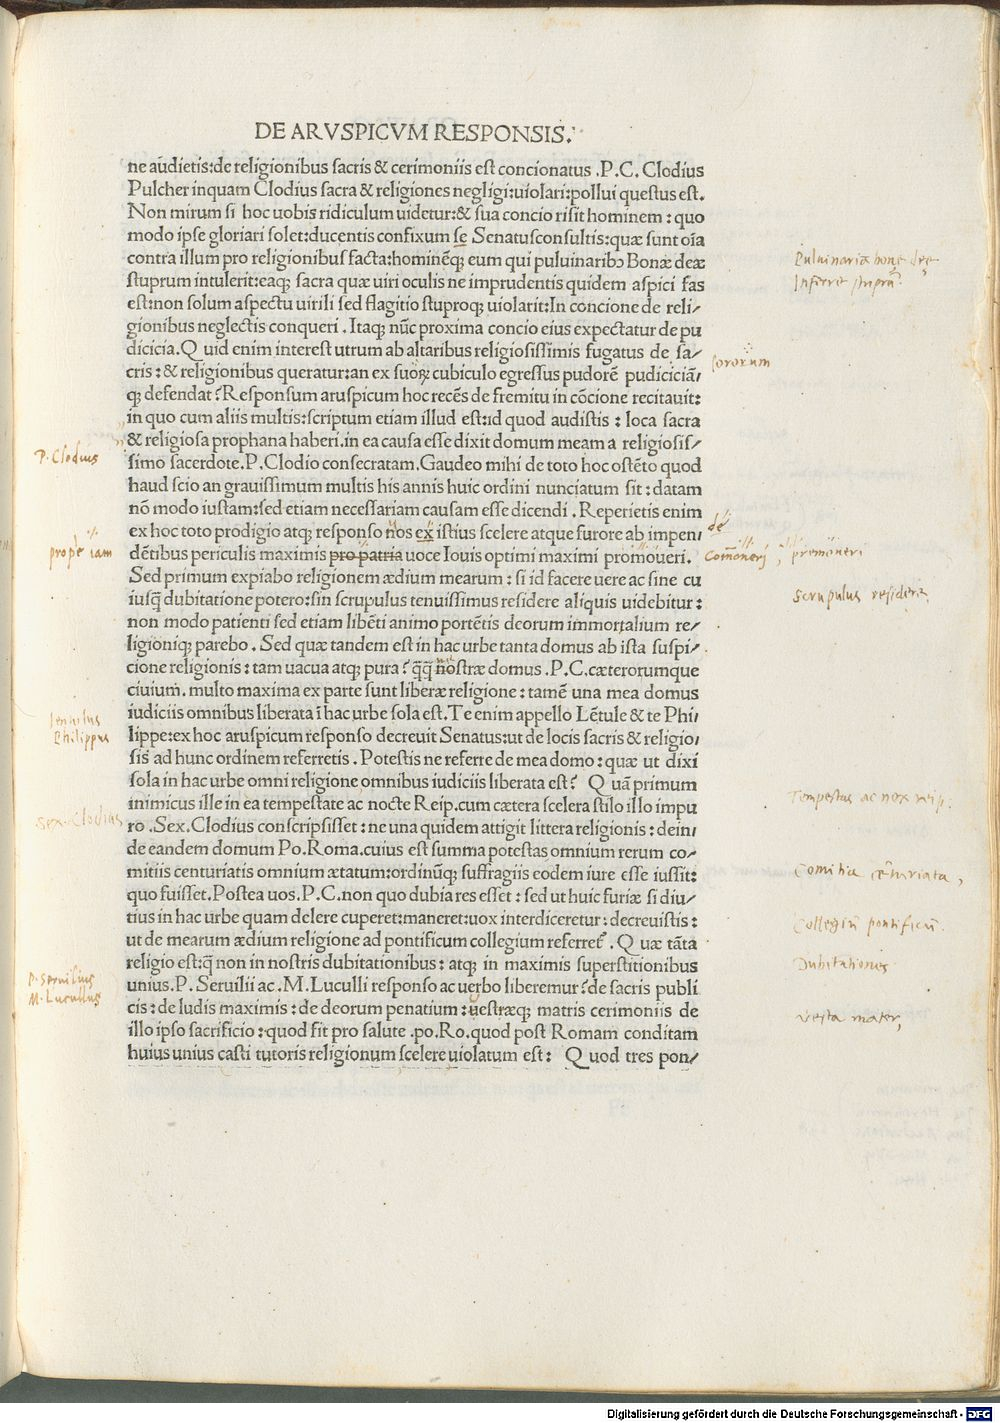 DE ARVSPICVM RESPONSIS.
ne audietis:de religionibus sacris & cerimoniis est concionatus .P.C. Clodius
Pulcher inquam Clodius sacra & religiones negligi:uiolari:pollui questus est.
Non mirum si hoc uobis ridiculum uidetur:& sua concio risit hominem : quo
modo ipse gloriari solet:ducentis confixum se Senatusconsultis:quæ sunt oĩa
contra illum pro religionibus facta:hominẽq; eum qui puluinaribꝰ Bonæ deæ
stuprum intulerit:eaq; sacra quæ uiri oculis ne imprudentis quidem aspici fas
est:non solum aspectu uirili sed flagitio stuproq; uiolarit:In concione de reli/
gionibus neglectis conqueri . Itaq; nũc proxima concio eius expectatur de pu
dicicia.Quid enim interest utrum ab altaribus religiosissimis fugatus de sa/
cris : & religionibus queratur:an ex suoꝝ cubiculo egressus pudorẽ pudiciciã/
q; defendat?Responsum aruspicum hoc recẽs de fremitu in cõcione recitauit:
in quo cum aliis multis:scriptum etiam illud est:id quod audistis : loca sacra
& religiosa prophana haberi.in ea causa esse dixit domum meam a religiosis/
simo sacerdote.P.Clodio consecratam.Gaudeo mihi de toto hoc ostẽto quod
haud scio an grauissimum multis his annis huic ordini nunciatum sit : datam
nõ modo iustam:sed etiam necessariam causam esse dicendi . Reperietis enim
ex hoc toto prodigio atq; responso nos ex istius scelere atque furore ab impen/
dẽtibus periculis maximis pro patria uoce Iouis optimi maximi promoueri.
Sed primum expiabo religionem ædium mearum : si id facere uere ac sine cu
iusq̃ dubitatione potero:sin scrupulus tenuissimus residere aliquis uidebitur :
non modo patienti sed etiam libẽti animo portẽtis deorum immortalium re/
ligioniq; parebo . Sed quæ tandem est in hac urbe tanta domus ab ista suspi/
cione religionis : tam uacua atq; pura ? q̃q̃ nostræ domus .P.C.cæterorumque
ciuium. multo maxima ex parte sunt liberæ religione : tamẽ una mea domus
iudiciis omnibus liberata ĩ hac urbe sola est.Te enim appello Lẽtule & te Phi/
lippe:ex hoc aruspicum responso decreuit Senatus:ut de locis sacris & religio/
sis ad hunc ordinem referretis . Potestis ne referre de mea domo : quæ ut dixi
sola in hac urbe omni religione omnibus iudiciis liberata est? Quã primum
inimicus ille in ea tempestate ac nocte Reip.cum cætera scelera stilo illo impu
ro .Sex.Clodius conscripsisset : ne una quidem attigit littera religionis : dein/
de eandem domum Po.Roma.cuius est summa potestas omnium rerum co/
mitiis centuriatis omnium ætatum:ordinũq; suffragiis eodem iure esse iussit:
quo fuisset.Postea uos.P.C.non quo dubia res esset : sed ut huic furiæ si diu/
tius in hac urbe quam delere cuperet:maneret:uox interdiceretur : decreuistis :
ut de mearum ædium religione ad pontificum collegium referreť .Quæ tãta
religio est:q̃ non in nostris dubitationibus : atq; in maximis superstitionibus
unius.P.Seruilii ac .M.Luculli responso ac uerbo liberemur?de sacris publi
cis : de ludis maximis : de deorum penatium : uestræq; matris cerimoniis de
illo ipso sacrificio : quod fit pro salute .po.Ro.quod post Romam conditam
huius unius casti tutoris religionum scelere uiolatum est : Quod tres pon/
sororum
P. Clodius
prope iam
de
Comoneri ; premoneri
scrupulus residere
lentulus
Philippus
Sex. Clodius
Tempestas ac nox reip.
Comitia cẽturiata,
Collegiũ pontificũ.
Dubitationes
P. Seruilius
M. Lucullus
uesta mater,
Digitalisierung gefördert durch die Deutsche Forschungsgemeinschaft - DFG